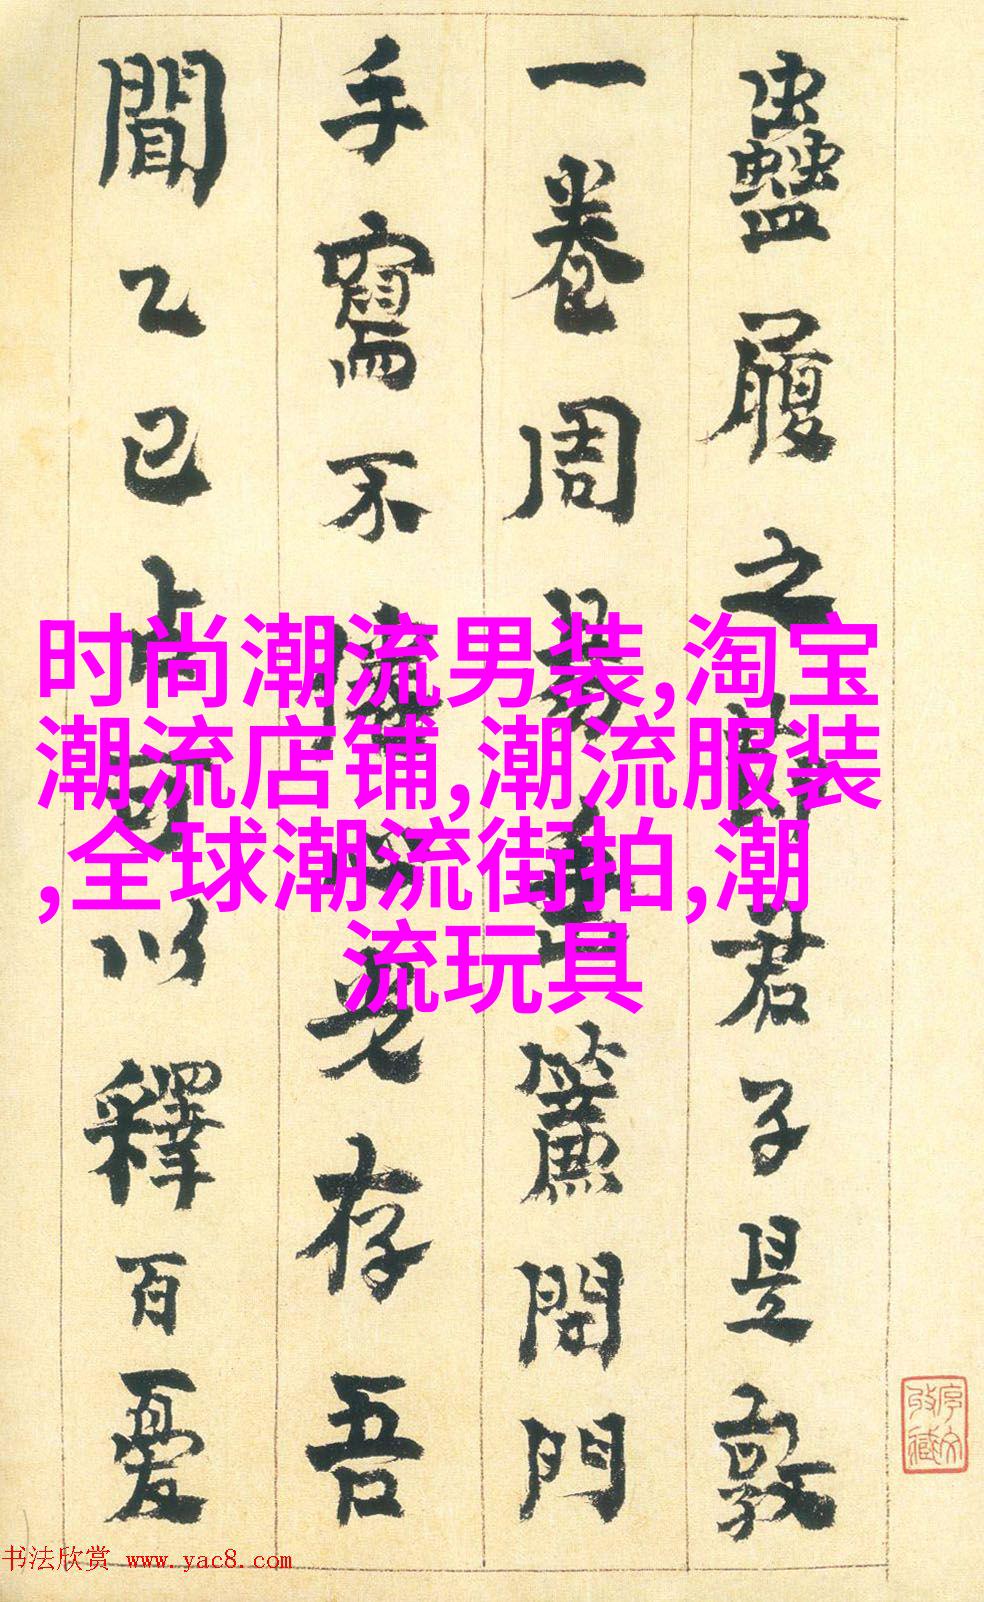 蠱履之節君子是敦
一卷周易垂簾閉門
手寫不心存吾
聞乙巳占可以釋百憂
时尚潮流男装,淘宝
潮流店铺,潮流服装
,全球潮流街拍,潮
流玩具
书法欣赏 www.yac8.com